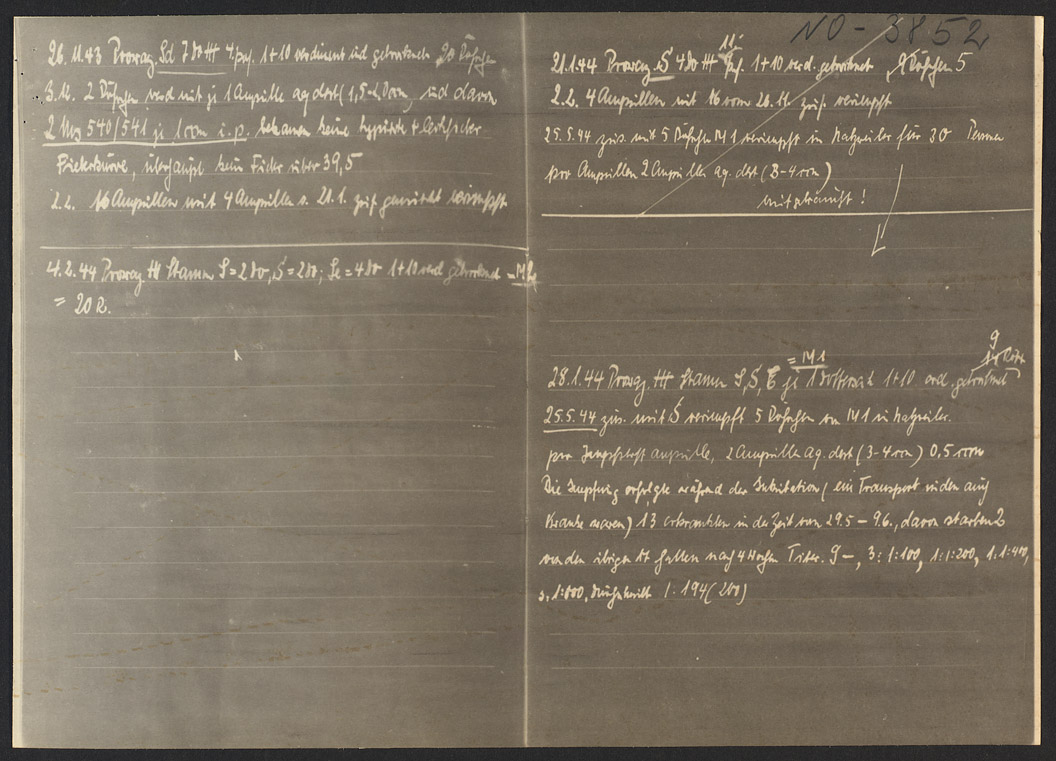 NO-3852
26.11.43 Prowaz. Sd 7 do +++ 1+10 verdünnt und getrocknet 20 Röhrchen
3.12. 2 Röhrchen verd mit je 1 Ampulle aq dest (1,5-2,0 ccm) und davon
2 Mrs 540/541 je 1 ccm i.p. bekamen keine typische
Fieberkurve, überhaupt kein Fieber über 39,5
2.2. 16 Ampullen mit 4 Ampullen v. 21.1. zus. gemischt verimpft
4.2.44 Prowaz +++ Stamm S=2do, Š=2do; Se=4do 1+10 verd getrocknet = M2
= 20 R.
21.1.44 Prowaz. Š 4do +++ 1+10 verd. getrocknet Röhrchen 5
2.2. 4 Ampullen mit 16 vom 26.11 zus. verimpft
25.5.44 zus. mit 5 Röhrchen M1 verimpft in Natzweiler für 30 Personen
pro Ampullen 2 Ampullen aq. dest (3-4 ccm)
!
9
= M1
28.1.44 Prowaz. +++ Stamm S, Š, je 1+10 verd. getrocknet
25.5.44 zus. mit Š verimpft 5 Röhrchen von M1 in Natzweiler.
pro Impfstoffampulle, 2 Ampullen aq. dest (3-4 ccm) 0,5 ccm
Die Impfung erfolgte während der Inkubation (ein Transport in dem auch
Kranke waren) 13 erkrankten in der Zeit vom 29.5 - 9.6., davon starben 2
von den übrigen 17 hatten nach 4 Wochen Titer. 9 -, 3: 1:100, 1:1:200, 1:1:400,
3: 1:800, Durchschnitt 1:194 (200)